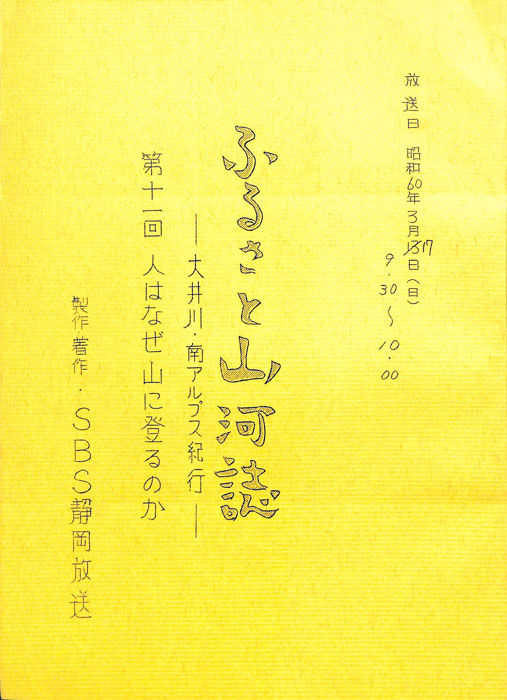 放送日 昭和60年3月17日(日)
9.30〜10.00
ふるさと山河誌
―大井川・南アルプス紀行―
第十一回 人はなぜ山に登るのか
製作著作・SBS静岡放送